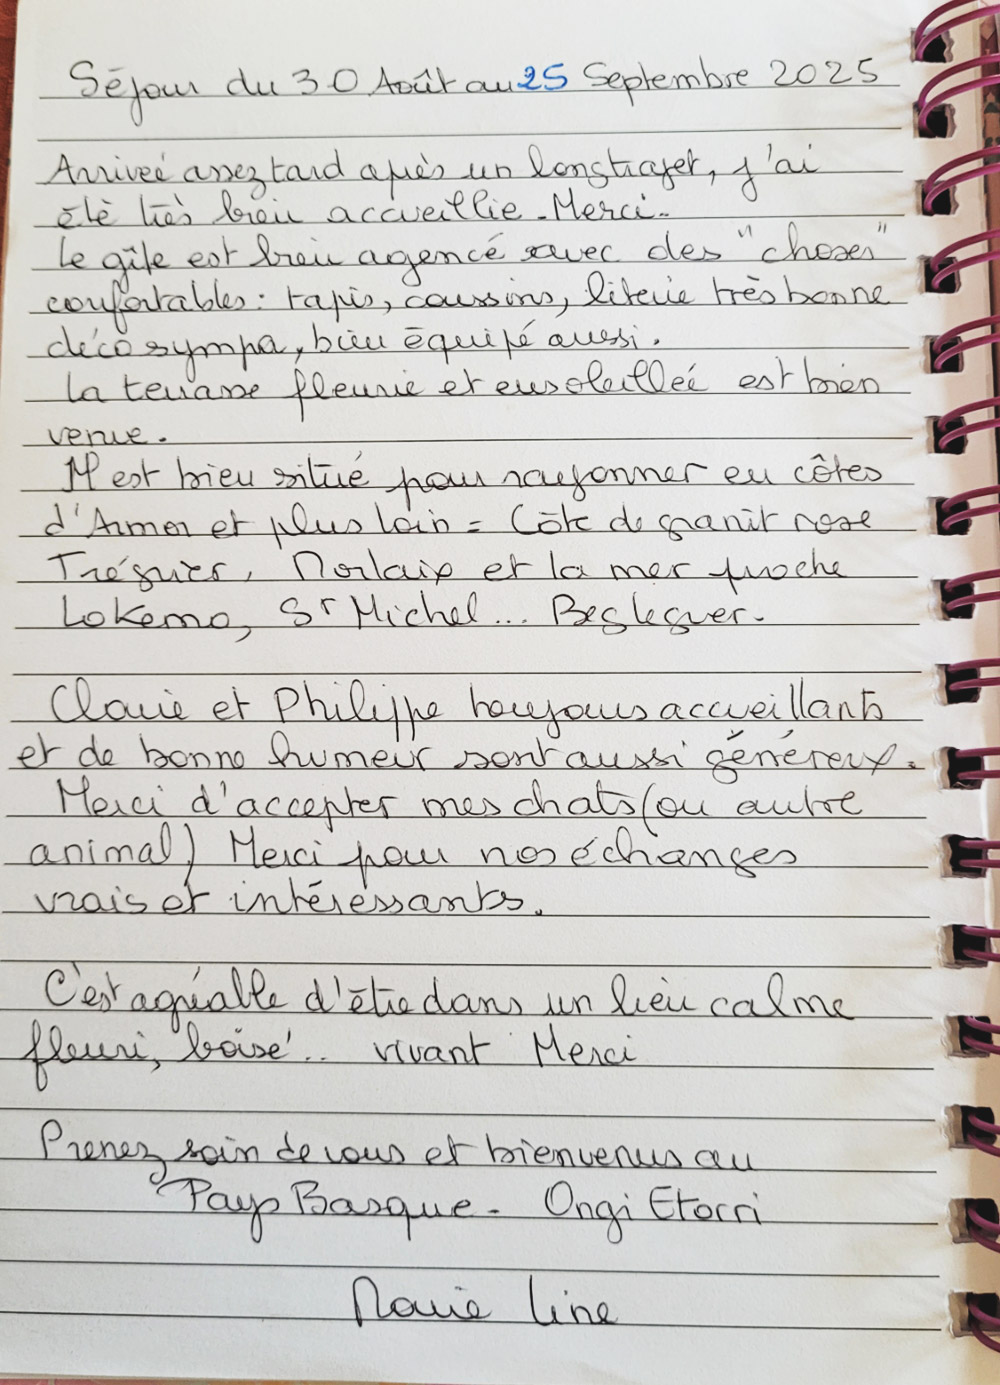 Séjour du 30 Août au 25 Septembre 2025
Arriveé assez tard après un long trajet, j'ai
été très bien accueillie. Merci.
Le gîte est bien agencé avec des "choses"
confortables : tapis, coussins, literie très bonne
déco sympa, bien équipé aussi.
La terrasse fleurie et ensoleilleé est bien
venue.
Il est bien situé pour rayonner en côtes
d'Armor et plus loin = Côte de granit rose
Tréguier, Morlaix et la mer proche
Lokemo, St Michel... Begleguer.
Claire et Philippe toujours accueillants
et de bonne humeur sont aussi généreux.
Merci d'accepter mes chats (ou autre
animal) Merci pour nos échanges
vrais et intéressants.
C'est agréable d'être dans un lieu calme
fleuri, boisé... vivant Merci
Prenez soin de vous et bienvenus au
Pays Basque - Ongi Etorri
Marie Line